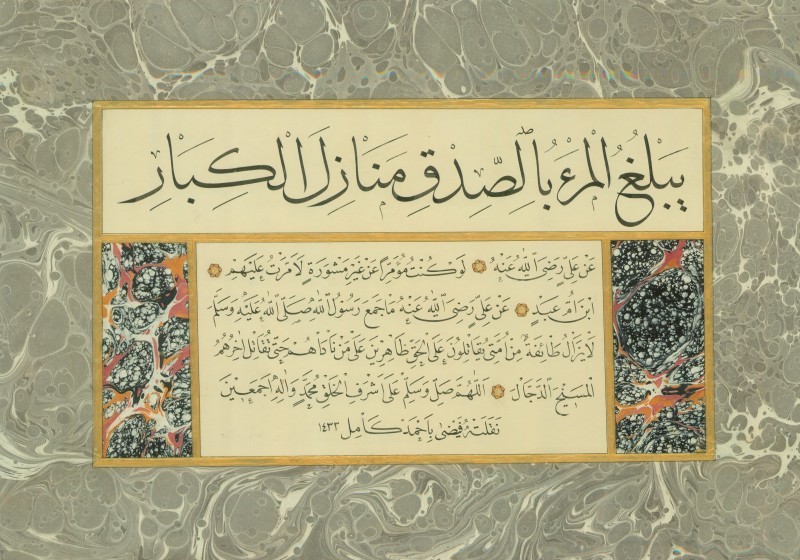 يَبْلُغُ الْمَرْءُ بِالصِّدْقِ مَنَازِلَ الْكِبَارِ
عَنْ عَلِيٍّ رَضِيَ اللّٰهُ عَنْهُ لَوْ كُنْتُ مُؤَمِّرًا عَنْ غَيْرِ مَشُورَةٍ لَأَمَّرْتُ عَلَيْهِمْ
ابْنَ أُمِّ عَبْدٍ عَنْ عَلِيٍّ رَضِيَ اللّٰهُ عَنْهُ مَا جَمَعَ رَسُولُ اللّٰهِ صَلَّى اللّٰهُ عَلَيْهِ وَسَلَّمَ
لَا يَزَالُ طَائِفَةٌ مِنْ أُمَّتِي يُقَاتِلُونَ عَلَى الْحَقِّ ظَاهِرِينَ عَلَى مَنْ نَاوَاهُمْ حَتَّى يُقَاتِلَ آخِرُهُمُ
الْمَسِيحَ الدَّجَّالَ اَللّٰهُمَّ صَلِّ وَسَلِّمْ عَلَى أَشْرَفِ الْخَلْقِ مُحَمَّدٍ وَآلِهِ أَجْمَعِينَ
نَقَلْتُهُ فَيْضِيًّا بِأَحْمَدَ كَامِل ١٤٣٣